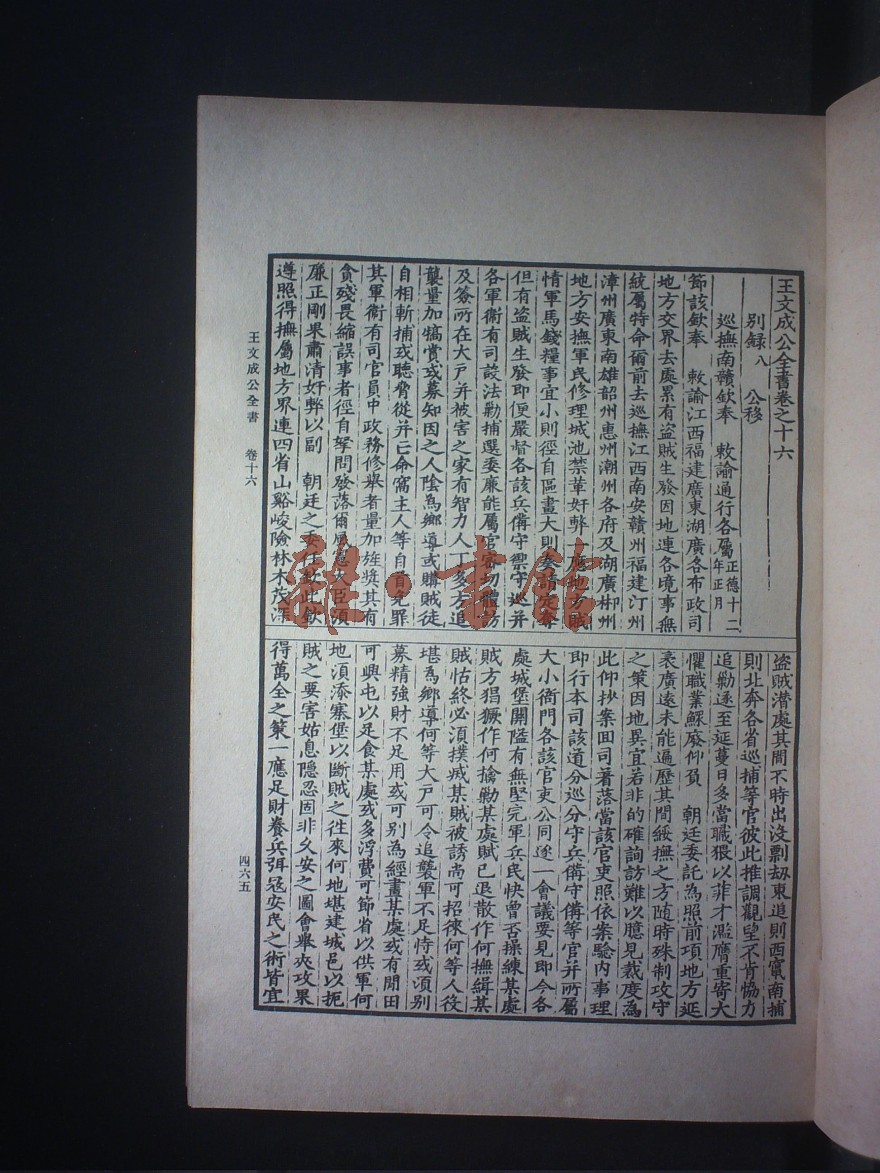 王文成公全書卷之十六
別録八 公移
巡撫南贛欽奉 敕諭通行各屬正德十二年正月
節該欽奉 敕諭江西福建廣東湖廣各布政司
地方交界去處累有盗賊生發因地連各境事無
統屬特命爾前去巡撫江西南安贛州福建汀州
漳州廣東南雄韶州惠州潮州各府及湖廣郴州
地方安撫軍民修理城池禁革奸弊一應地方賊
情軍馬錢糧事宜小則徑自區畫大則奏請定奪
但有盗賊生發即便嚴督各該兵備守禦守巡并
各軍衞有司設法勦捕選委廉能屬官密切體訪
及簽所在大戶并被害之家有智力人丁多方追
襲量加犒賞或募知因之人陰為鄉導或購賊徒
自相斬捕或聽脅從并亡命窩主人等自首免罪
其軍衞有司官員中政務修舉者量加旌獎其有
貪殘畏縮誤事者徑自拏問發落爾風憲大臣須
廉正剛果肅清奸弊以副 朝廷之委任欽此欽
遵照得撫屬地方界連四省山谿峻險林木茂深
盗賊潜處其間不時出没剽刼東追則西竄南捕
則北奔各省巡捕等官彼此推調觀望不肯恊力
追勦遂至延蔓日多當職猥以菲才濫膺重寄大
懼職業鰥廢仰負 朝廷委託為照前項地方延
袤廣遠未能遍歷其間綏撫之方隨時殊制攻守
之策因地異宜若非的確詢訪難以臆見裁度為
此仰抄案囬司着落當該官吏照依案驗内事理
即行本司該道分巡分守兵備守備等官并所屬
大小衙門各該官吏公同逐一會議要見即今各
處城堡關隘有無堅完軍兵民快曾否操練某處
賊方猖獗作何擒勦某處賊已退散作何撫緝某
賊怙終必須撲滅某賊被誘尚可招徠何等人役
堪為鄉導何等大戶可令追襲軍不足恃或須别
募精強財不足用或可别為經畫某處或有閒田
可興屯以足食某處或多浮費可節省以供軍何
地須添寨堡以斷賊之徃來何地堪建城邑以扼
賊之要害姑息隱忍固非久安之圖會舉夾攻果
得萬全之策一應足財養兵弭冦安民之術皆宜
王文成公全書 卷十六
四六五